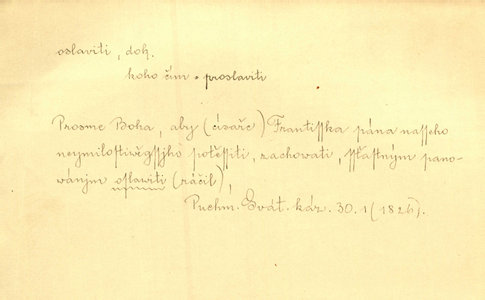 oslaviti, dok.
koho čím = proslaviti
Prosme Boha, aby (císaře) Frantisska pána nasseho
neymilostiwěgssjho potěssiti, zachowati, sstastným pano-
wánjm oslawiti (ráčil),
Puchm. Svát. káz. 30. 1 (1826).